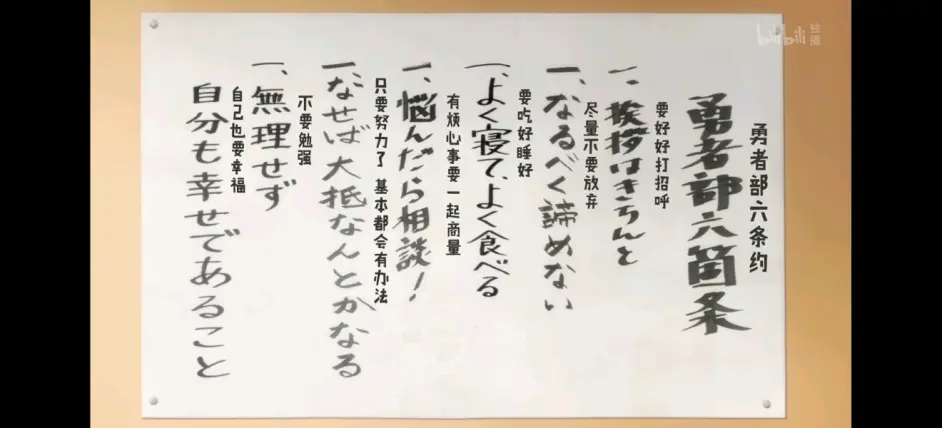 勇者部六条约
勇者部六箇条
要好好打招呼
一、挨拶はきちんと
尽量不要放弃
一、なるべく諦めない
要吃好睡好
一、よく寝て、よく食べる
有烦心事要一起商量
一、悩んだら相談!
只要努力了 基本都会有办法
一、なせば大抵なんとかなる
不要勉强
一、無理せず
自己也要幸福
自分も幸せであること
bilibili
独播